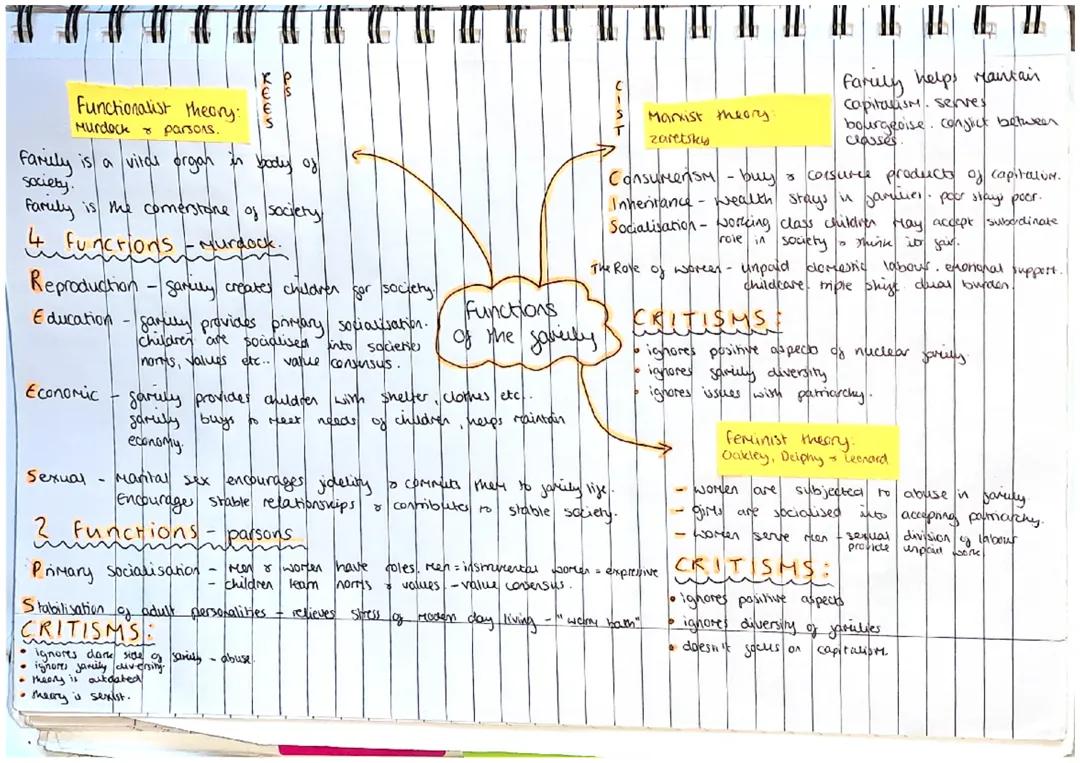 R
E
E
S
P
S
Functionalist theory:
Murdock & parsons.
Family is a vital organ in body of
society.
Family is the cornerstone of society
4 Functions - Murdock.
Reproduction - family creates children for society.
Education - family provides primary socialisation.
children are socialised into societies
norms, values etc.. value consensus.
Economic - family provides children with shelter, clothes etc..
family buys to meet needs of children, helps maintain
economy.
Sexual - Marital sex encourages fidelity & commits them to family life.
Encourages stable relationships & contributes to stable society.
2 Functions - parsons
Primary Socialisation - Men & women have roles. Men = instrumental women = expressive
- children learn norms & values. - value consensus.
Stabilisation of adult personalities - relieves stress of modern day living - "warm bath"
CRITISMS:
• ignores dark side of family - abuse.
• ignores family diversity.
• theory is outdated
• theory is sexist.
Functions
of the family
C
I
S
T
Marxist theory:
zaretsky
Family helps maintain
capitalism. serves
bourgeoise. conflict between
classes.
Consumerism - buy & consume products of capitalism.
Inheritance - wealth stays in families. poor stays poor.
Socialisation - working class children may accept subordinate
role in society & think its fair.
The Role of women - unpaid domestic labour. emotional support.
childcare. triple shift. dual burden.
CRITISMS:
• ignores positive aspects of nuclear family.
• ignores family diversity
• ignores issues with patriarchy.
Feminist theory:
Oakley, Delphy & Leonard
- women are subjected to abuse in family
- girls are socialised into accepting patriarchy.
- women serve men - sexual division of labour
provide unpaid work
CRITISMS:
• ignores positive aspects
• ignores diversity of families
• doesn't focus on capitalism.